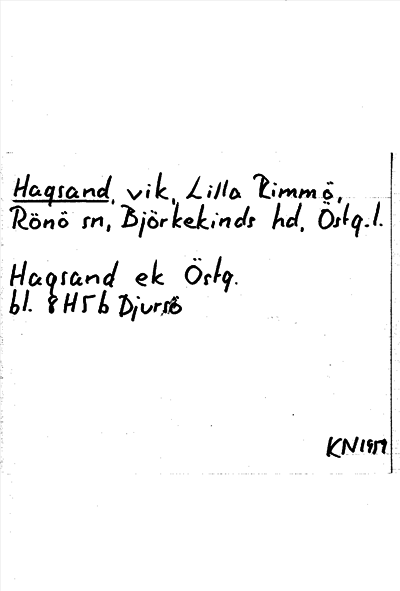 Hagsand, vik, Lilla Rimmö,
Rönö sn, Björkekinds hd, Östg. l.
Hagsand ek Östg.
bl. 8H5b Djursö
KN 1959